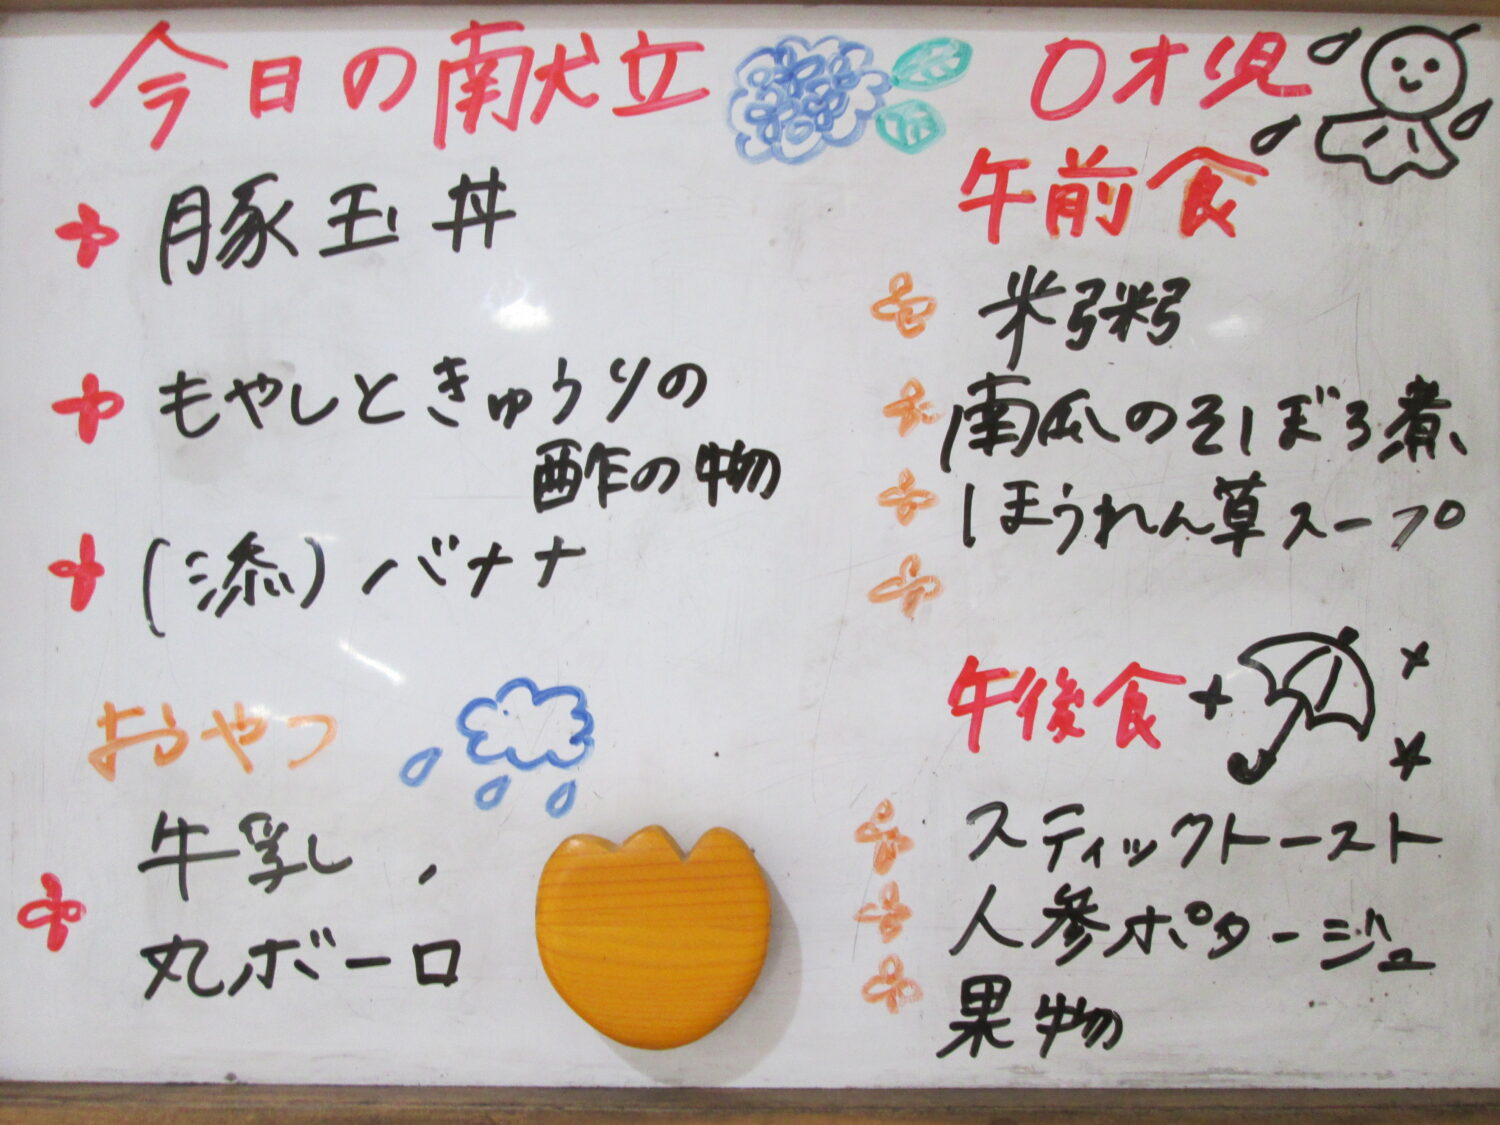 今日の献立
豚玉丼
もやしときゅうりの
酢の物
(添)バナナ
おやつ
牛乳、
丸ボーロ
0才児
午前食
米粥
南瓜のそぼろ煮、
ほうれん草スープ
午後食
スティックトースト
人参ポタージュ
果物